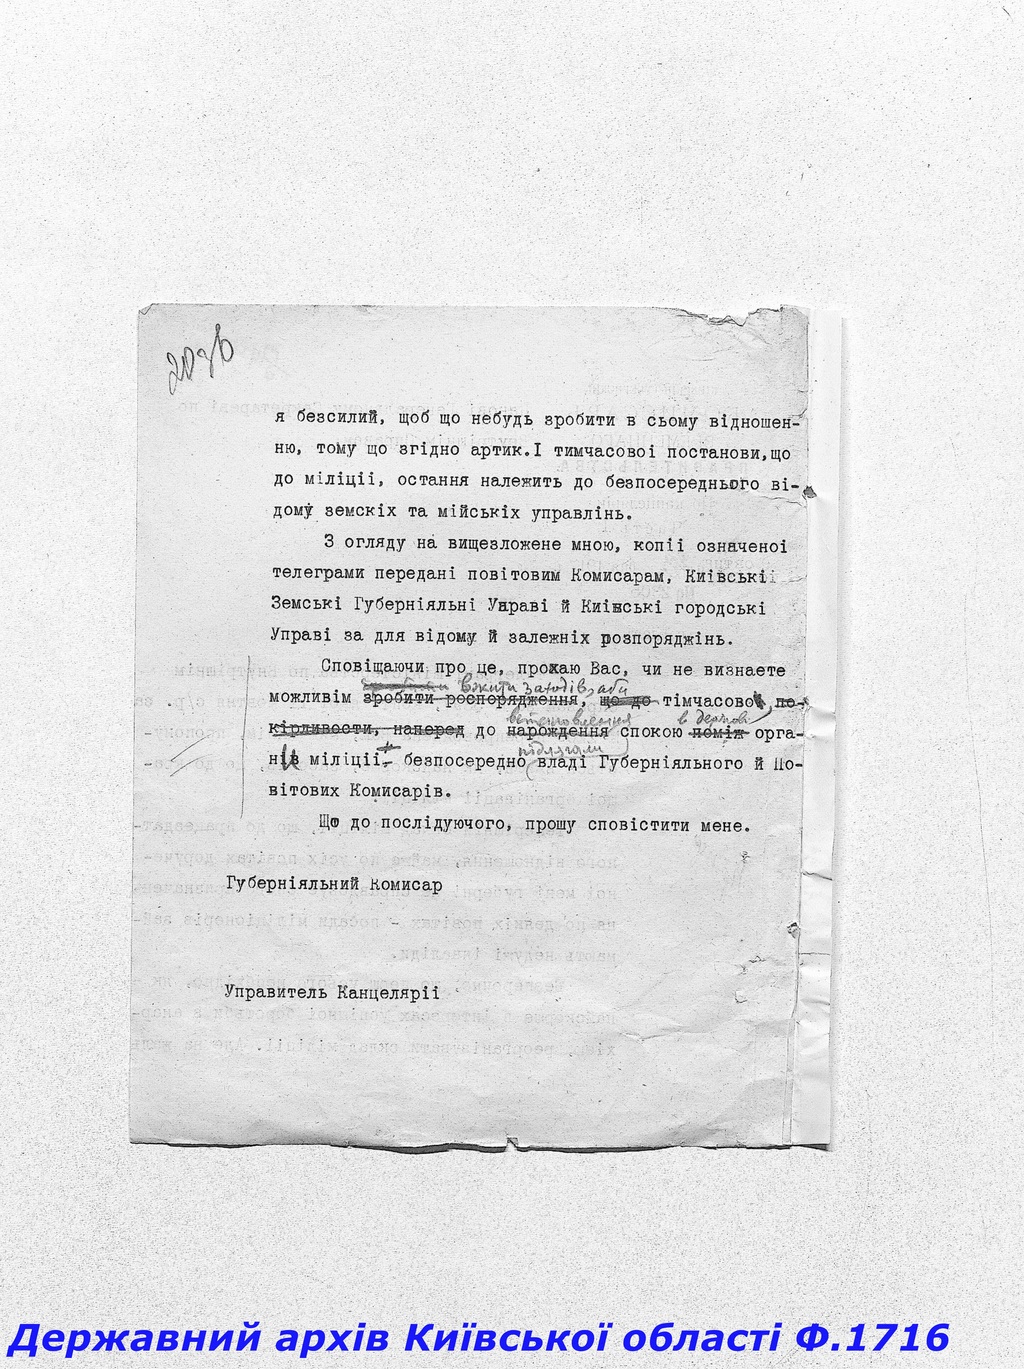 20 зв
я безсилий, щоб що небудь зробити в сьому відношен-
ню, тому що згідно артик.І тимчасовоі постанови,що
до міліціі, остання належить до безпосереднього ві-
дому земскіх та мійськіх управлінь.
З огляду на вищезложене мною, копіі означеноі
телеграми передані повітовим Комисарам, Киівські
Земські Губерніяльні Управі й Киівські городські
Управі за для відому й залежніх розпоряджінь.
Сповіщаючи про це, прохаю Вас, чи не визнаете
вжити заходів, аби
можливім зробити роспорядження, що до тімчасово по-
встановлення в державі
кірливости, наперед до нарождення спокою поміж орга-
підлягали
нів міліціі безпосередно владі Губерніяльного й По-
вітових Комисарів.
Що до послідуючого, прошу сповістити мене.
Губерніяльний Комисар
Управитель Канцеляріі
Державний архів Київської області Ф.1716